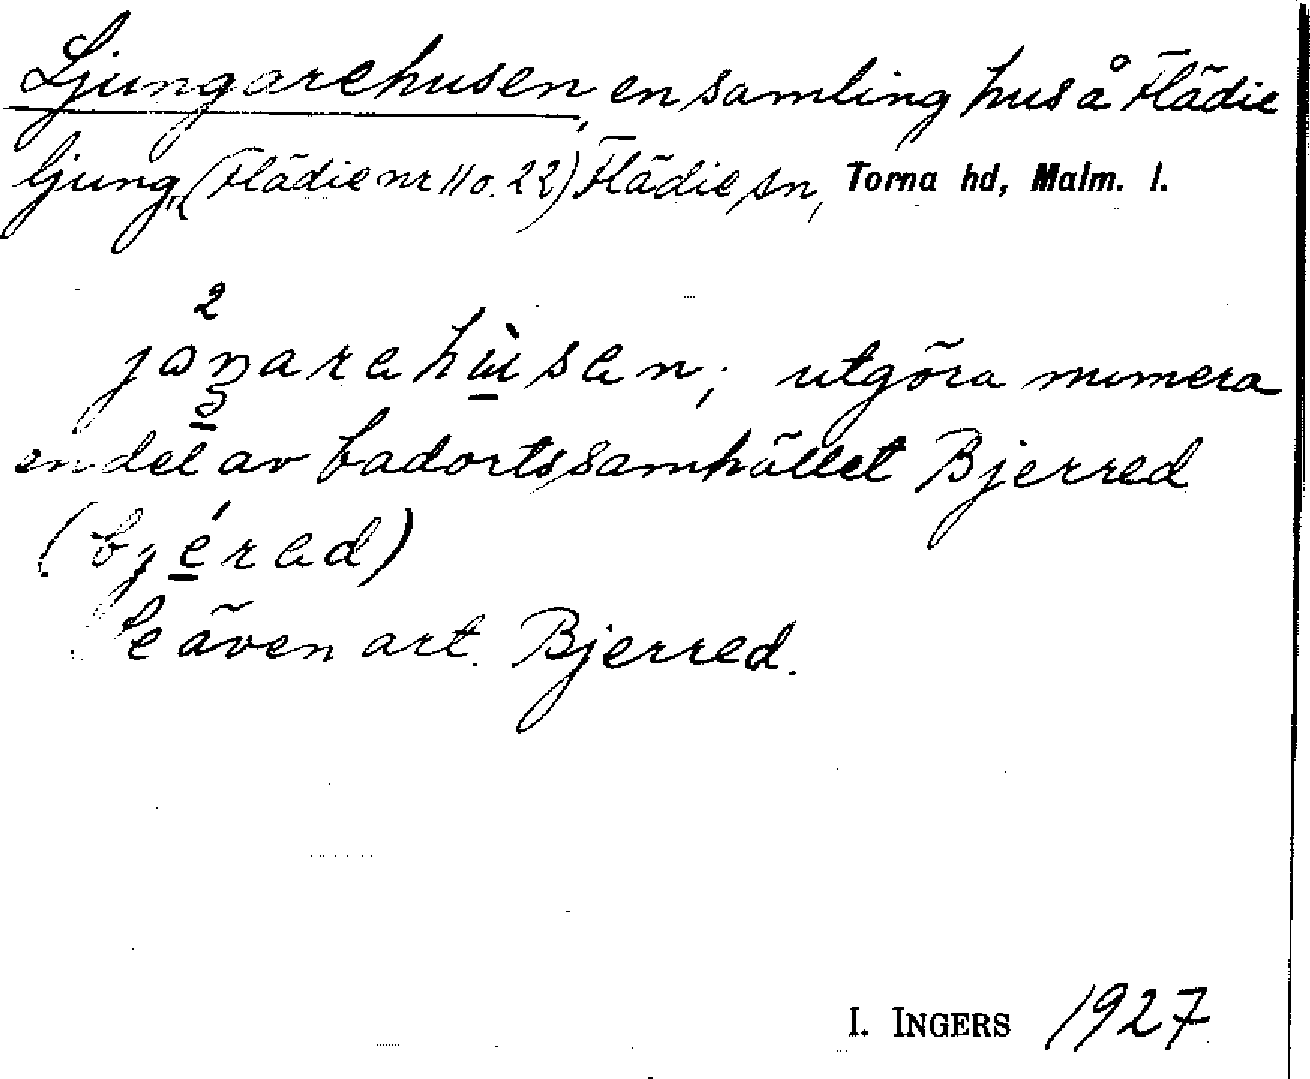 Ljungarehusen, en samling hus å Flädie
ljung, (Flädie nr 11 o. 22) Flädie sn, Torna hd, Malm. l.
2
jåŋarahùsan; utgöra numera
en del av badortssamhället Bjerred
(bjérad)
Se även art. Bjerred.
I. INGERS 1927